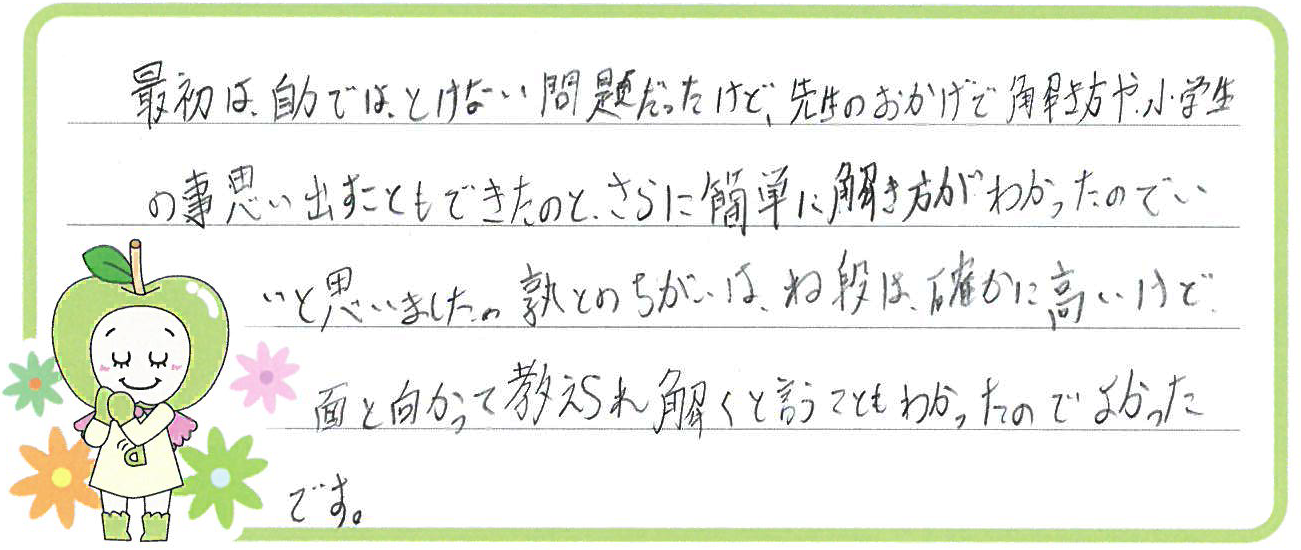 最初は、自力では、とけない問題だったけど、先生のおかげで解き方や、小学生
の事思い出すこともできたのと、さらに簡単に解き方がわかったのでい
いと思いました。塾とのちがいは、ね段は、確かに高いけど、
面と向かって教えられ解くと言うこともわかったのでよかった
です。